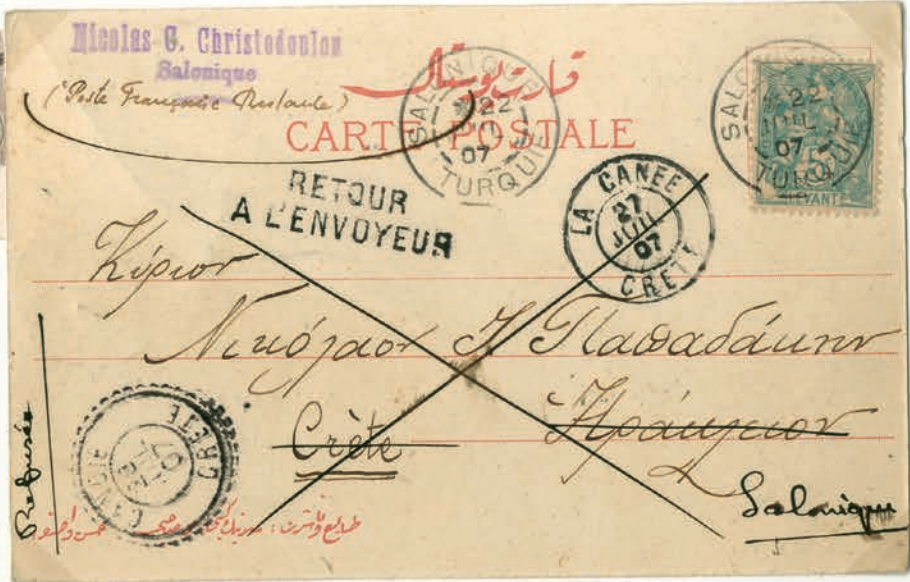 Nicolas G. Christodoulou
Salonique
(Poste Française Restante)
قارت پوستال
CARTE POSTALE
SALONIQUE
22
JUIL
07
TURQUIE
SALONIQUE
22
JUIL
07
TURQUIE
5
LEVANT
RETOUR
A L'ENVOYEUR
LA CANEE
27
JUIL
07
CRETE
Κύριον
Νικόλαον Ι. Παπαδάκην
Ηράκλειον
Crète
Salonique
CANDIE
07
CRETE
Refusée